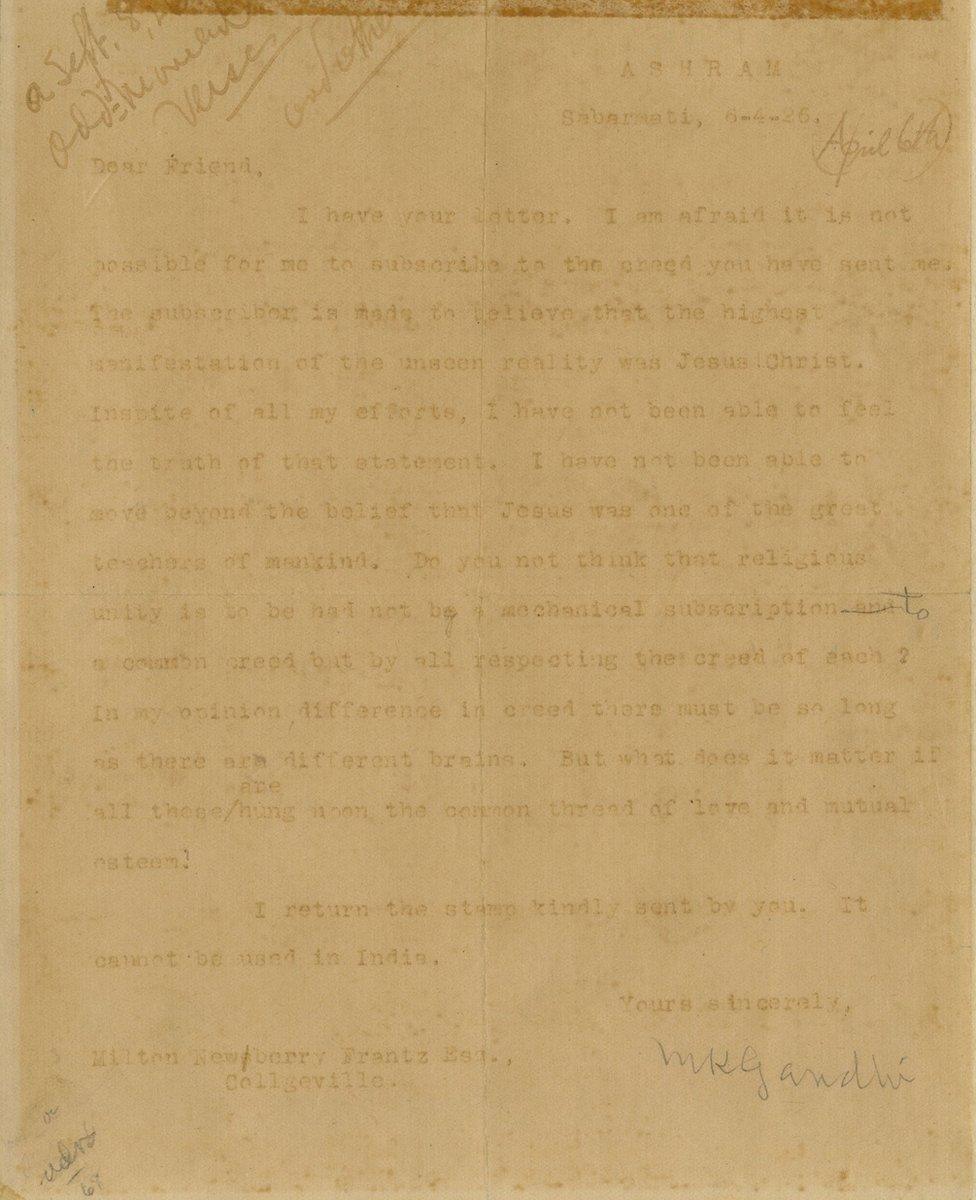 a Sept. 8,
add
Verse
and other
A S H R A M
Sabarmati, 6-4-26.
(April 6th)
Dear Friend,
I have your letter. I am afraid it is not
possible for me to subscribe to the creed you have sent me.
The subscriber is made to believe that the highest
manifestation of the unseen reality was Jesus Christ.
Inspite of all my efforts, I have not been able to feel
the truth of that statement. I have not been able to
move beyond the belief that Jesus was one of the great
teachers of mankind. Do you not think that religious
unity is to be had not by a mechanical subscription and to
a common creed but by all respecting the creed of each ?
In my opinion difference in creed there must be so long
as there are different brains. But what does it matter if
are
all these/hung upon the common thread of love and mutual
esteem?
I return the stamp kindly sent by you. It
cannot be used in India.
Yours sincerely,
MKGandhi
Milton Newberry Frantz Esq.,
Collgeville.